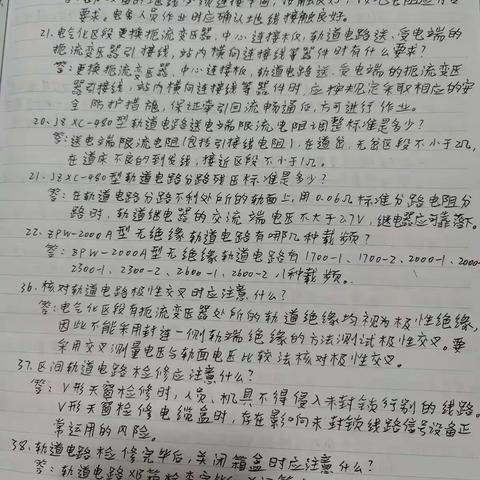 要求。电务人员作业时应确认地线接触良好。
21.电气化区段更换扼流变压器、中心连接板,轨道电路送、受电端的
扼流变压器引接线,站内横向连接线等器件时有什么要求?
答:更换扼流变压器、中心连接板,轨道电路送、受电端的扼流变压
器引接线,站内横向连接线等器件时,应按规定采取相应的安
全防护措施,保证牵引回流畅通后,方可进行作业。
20.JZXC-480型轨道电路送电端限流电阻调整标准是多少?
答:送电端限流电阻(包括引接线电阻),在道岔、无岔区段不小于2Ω,
在道床不良的到发线,接近区段不小于1Ω。
21.JZXC-480型轨道电路分路残压标准是多少?
答:在轨道电路分路不利处所的轨面上,用0.06Ω标准分路电阻分
路时,轨道继电器的交流端电压不大于2.7V,继电器应可靠落下。
22.ZPW-2000A型无绝缘轨道电路有哪几种载频?
答:ZPW-2000A型无绝缘轨道电路有1700-1、1700-2、2000-1、2000-
2300-1、2300-2、2600-1、2600-2八种载频。
36.核对轨道电路极性交叉时应注意什么?
答:电气化区段有扼流变压器处所的轨道绝缘均视为极性绝缘,
因此不能采用封连一侧轨端绝缘的方法测试极性交叉。要
采用交叉测量电压与轨面电压比较法核对极性交叉。
37.区间轨道电路检修应注意什么?
答:V形天窗检修时,人员、机具不得侵入未封锁行别的线路。
V形天窗检修电缆盒时,存在影响未封锁线路信号设备正
常运用的风险。
38.轨道电路检修完毕后,关闭箱盒时应注意什么?
答:轨道电路XB箱检查完毕